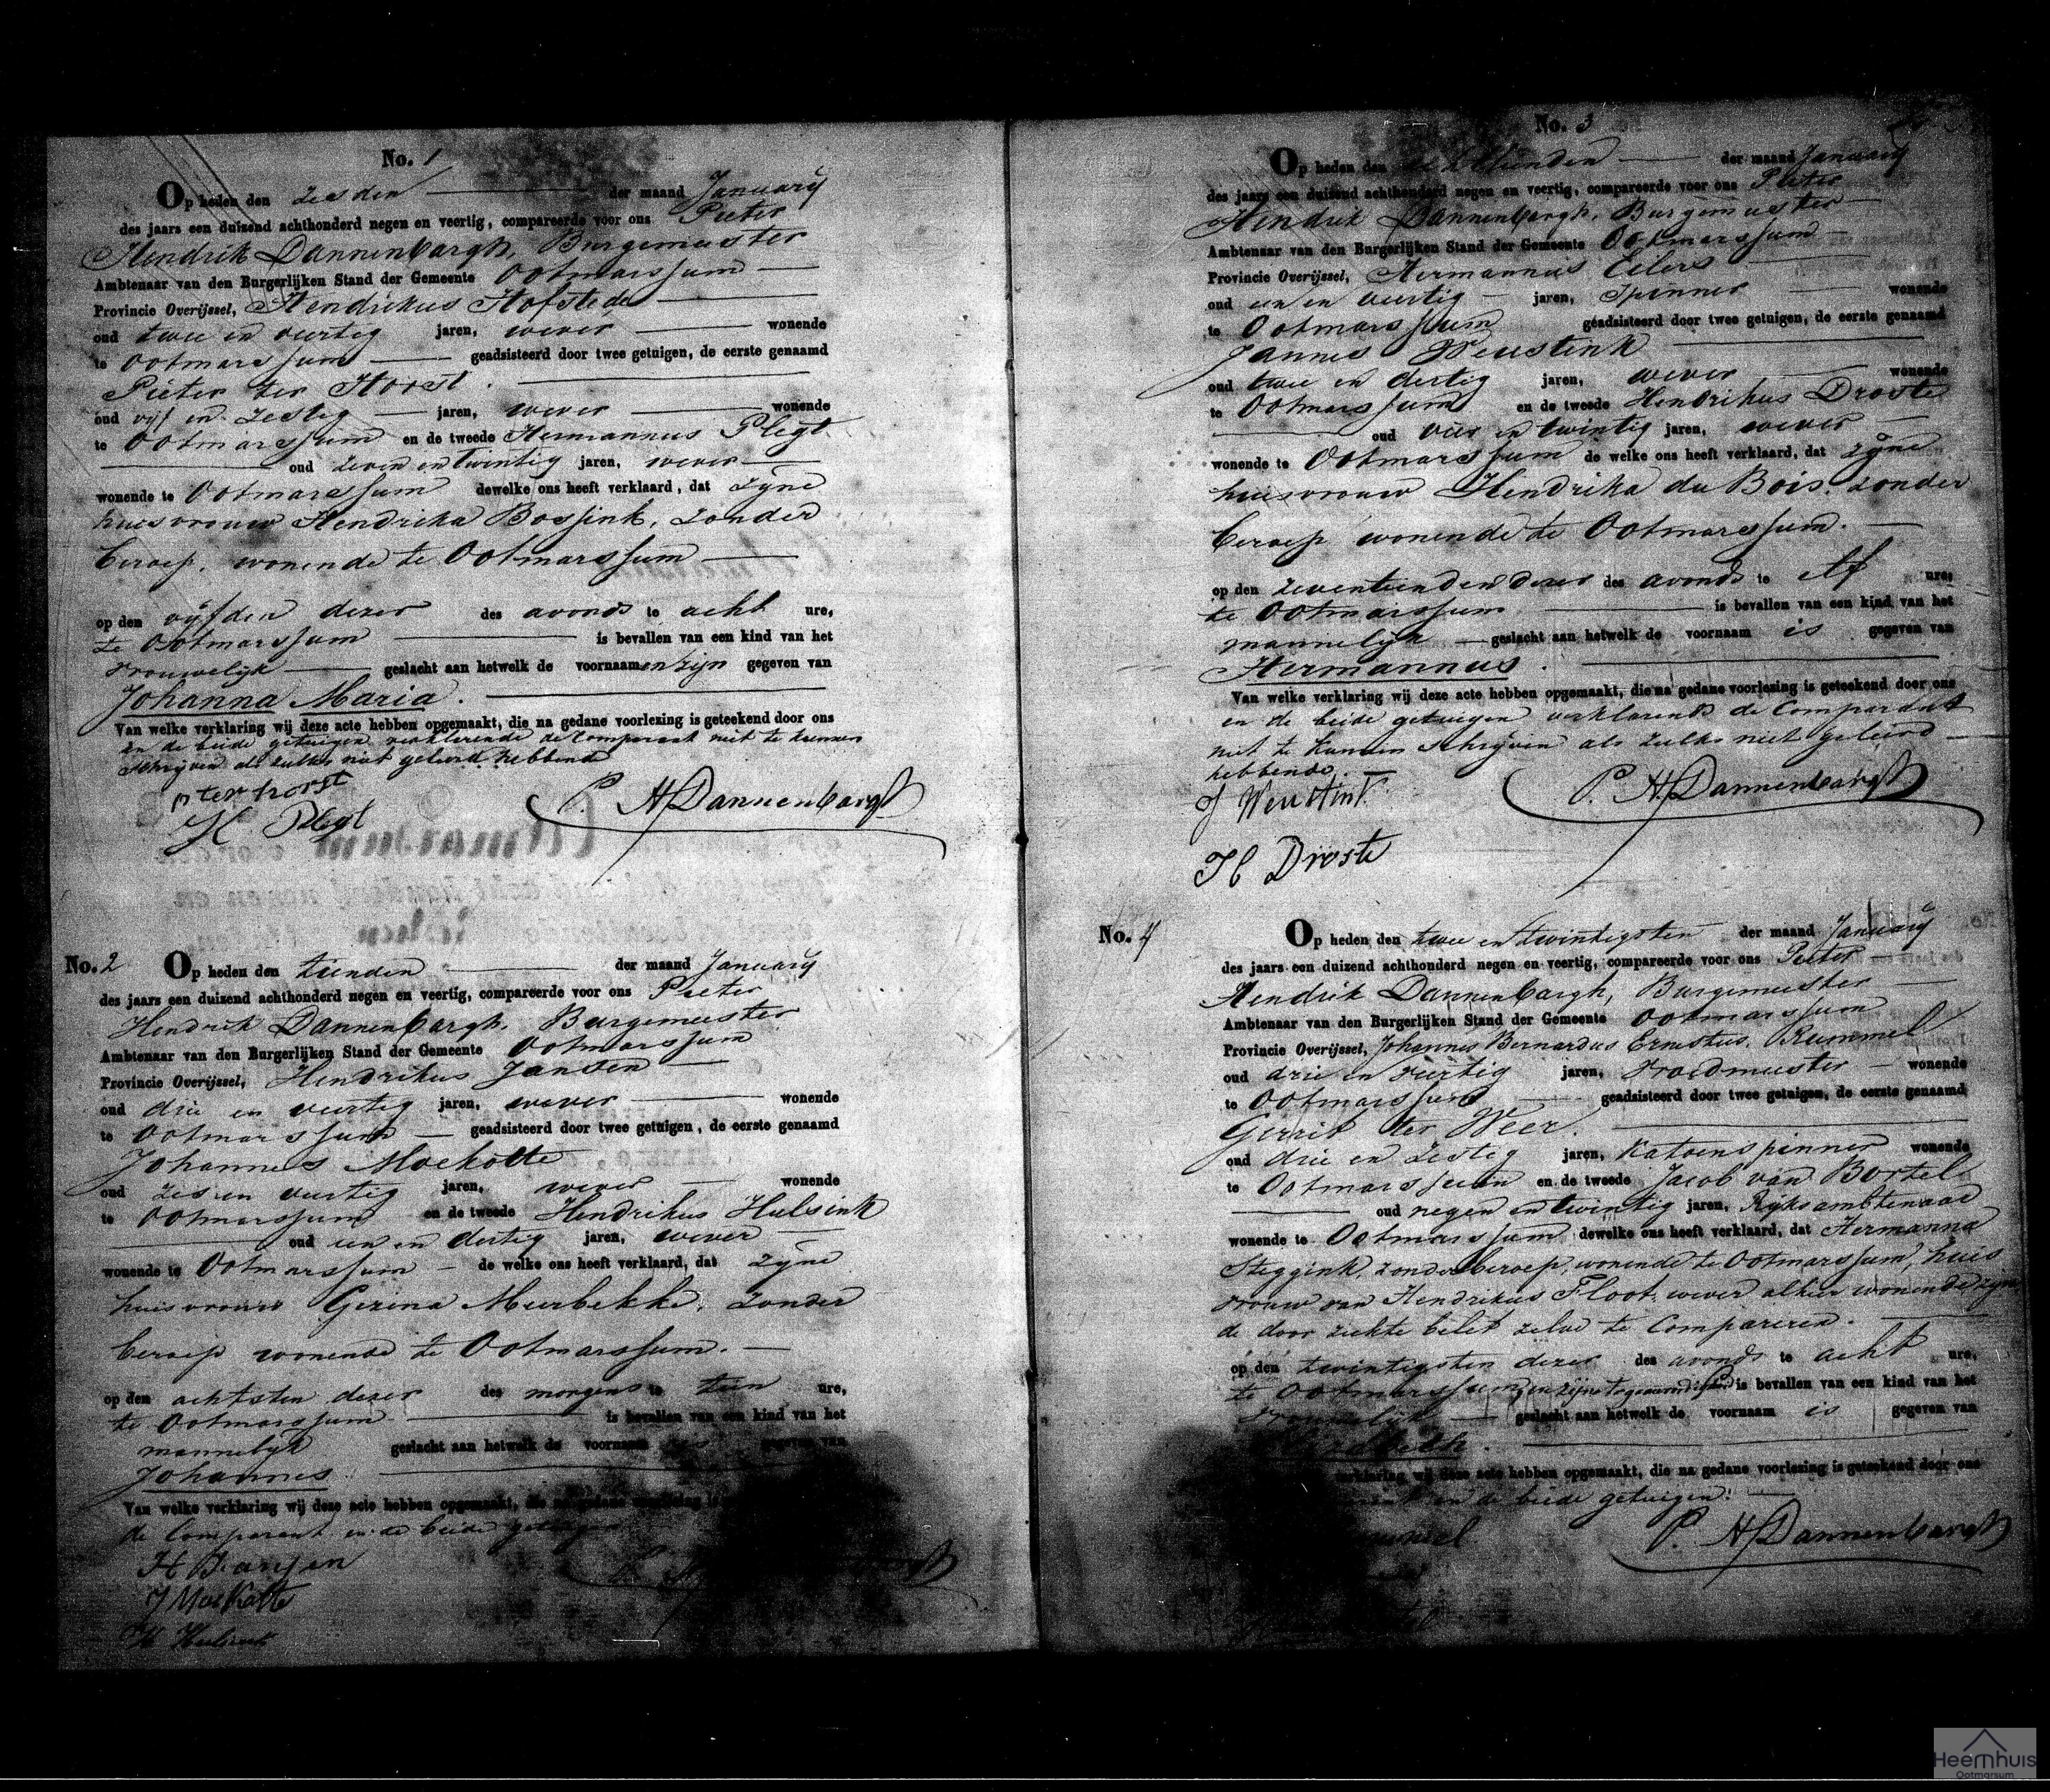 No. 1
Op heden den zesden der maand January
des jaars een duizend achthonderd negen en veertig, compareerde voor ons Pieter
Hendrik Dannenbargh, Burgemeester
Ambtenaar van den Burgerlijken Stand der Gemeente Ootmarssum
Provincie Overijssel, Hendrikus Hofstede
oud twee en veertig jaren, wever wonende
te Ootmarssum geadsisteerd door twee getuigen, de eerste genaamd
Pieter ter Horst.
oud vijf en zestig jaren, wever wonende
te Ootmarssum en de tweede Hermannus Plegt
oud zeven en twintig jaren, wever
wonende te Ootmarssum dewelke ons heeft verklaard, dat zyne
huisvrouw Hendrika Bossink, zonder
beroep, wonende te Ootmarssum
op den vijfden dezer des avonds te acht ure,
te Ootmarssum is bevallen van een kind van het
vrouwelijk geslacht aan hetwelk de voornaamen zijn gegeven van
Johanna Maria.
Van welke verklaring wij deze acte hebben opgemaakt, die na gedane voorlezing is geteekend door ons
en de beide getuigen verklarende de Comparant niet te kunnen
schrijven als zulks niet geleerd hebbende
p ter horst
H Plegt
P. H Dannenbargh
No. 2
Op heden den tienden der maand January
des jaars een duizend achthonderd negen en veertig, compareerde voor ons Pieter
Hendrik Dannenbargh, Burgemeester
Ambtenaar van den Burgerlijken Stand der Gemeente Ootmarssum
Provincie Overijssel, Hendrikus Jansen
oud drie en veertig jaren, wever wonende
te Ootmarssum geadsisteerd door twee getuigen, de eerste genaamd
Johannes Moekotte
oud zes en veertig jaren, wever wonende
te Ootmarssum en de tweede Hendrikus Hulsink
oud een en dertig jaren, wever
wonende te Ootmarssum de welke ons heeft verklaard, dat zyne
huisvrouw Gezina Meerbekke, zonder
beroep wonende te Ootmarssum.
op den achtsten dezer des morgens te tien ure,
te Ootmarssum is bevallen van een kind van het
mannelyk geslacht aan hetwelk de voornaam is gegeven van
Johannes.
Van welke verklaring wij deze acte hebben opgemaakt, die na gedane voorlezing is
de Comparant en de beide getuigen
H Jansen
J Moekotte
H Hulsink
No. 3
Op heden den der maand January
des jaars een duizend achthonderd negen en veertig, compareerde voor ons Pieter
Hendrik Dannenbargh, Burgemeester
Ambtenaar van den Burgerlijken Stand der Gemeente Ootmarssum
Provincie Overijssel, Hermannus Eilers
oud een en veertig jaren, Spinner wonende
te Ootmarssum geadsisteerd door twee getuigen, de eerste genaamd
Jannes Weustink
oud twee en dertig jaren, wever wonende
te Ootmarssum en de tweede Hendrikus Droste
oud vier en twintig jaren, wever
wonende te Ootmarssum de welke ons heeft verklaard, dat zyne
huisvrouw Hendrika du Bois. zonder
beroep wonende te Ootmarssum.
op den zeventienden dezer des avonds te elf ure,
te Ootmarssum is bevallen van een kind van het
mannelyk geslacht aan hetwelk de voornaam is gegeven van
Hermannus.
Van welke verklaring wij deze acte hebben opgemaakt, die na gedane voorlezing is geteekend door ons
en de beide getuigen verklarende de Comparant
niet te kunnen schrijven als zulks niet geleerd
hebbende.
J Weustink
P. H. Dannenbargh
H Droste
No. 4
Op heden den twee en twintigsten der maand January
des jaars een duizend achthonderd negen en veertig, compareerde voor ons Pieter
Hendrik Dannenbargh, Burgemeester
Ambtenaar van den Burgerlijken Stand der Gemeente Ootmarssum
Provincie Overijssel, Johannes Bernardus Ernestus, Rummel
oud drie en veertig jaren, Vroedmeester wonende
te Ootmarssum geadsisteerd door twee getuigen, de eerste genaamd
Gerrit ter Weer.
oud drie en zestig jaren, Katoenspinner wonende
te Ootmarssum en de tweede Jacob van Bortel
oud negen en twintig jaren, Ryksambtenaar
wonende te Ootmarssum dewelke ons heeft verklaard, dat Hermanna
Steggink, zonder beroep, wonende te Ootmarssum, huis
vrouw van Hendrikus Floot, wever alhier wonende zijn
de door ziekte belet zelve te Compareren.
op den twintigsten dezer des avonds te acht ure,
te Ootmarssum, in zijne tegenwoordigheid is bevallen van een kind van het
vrouwelijk geslacht aan hetwelk de voornaam is gegeven van
verklaring wij deze acte hebben opgemaakt, die na gedane voorlezing is geteekend door ons
en de beide getuigen.
P. H Dannenbargh
Heemhuis
Ootmarsum